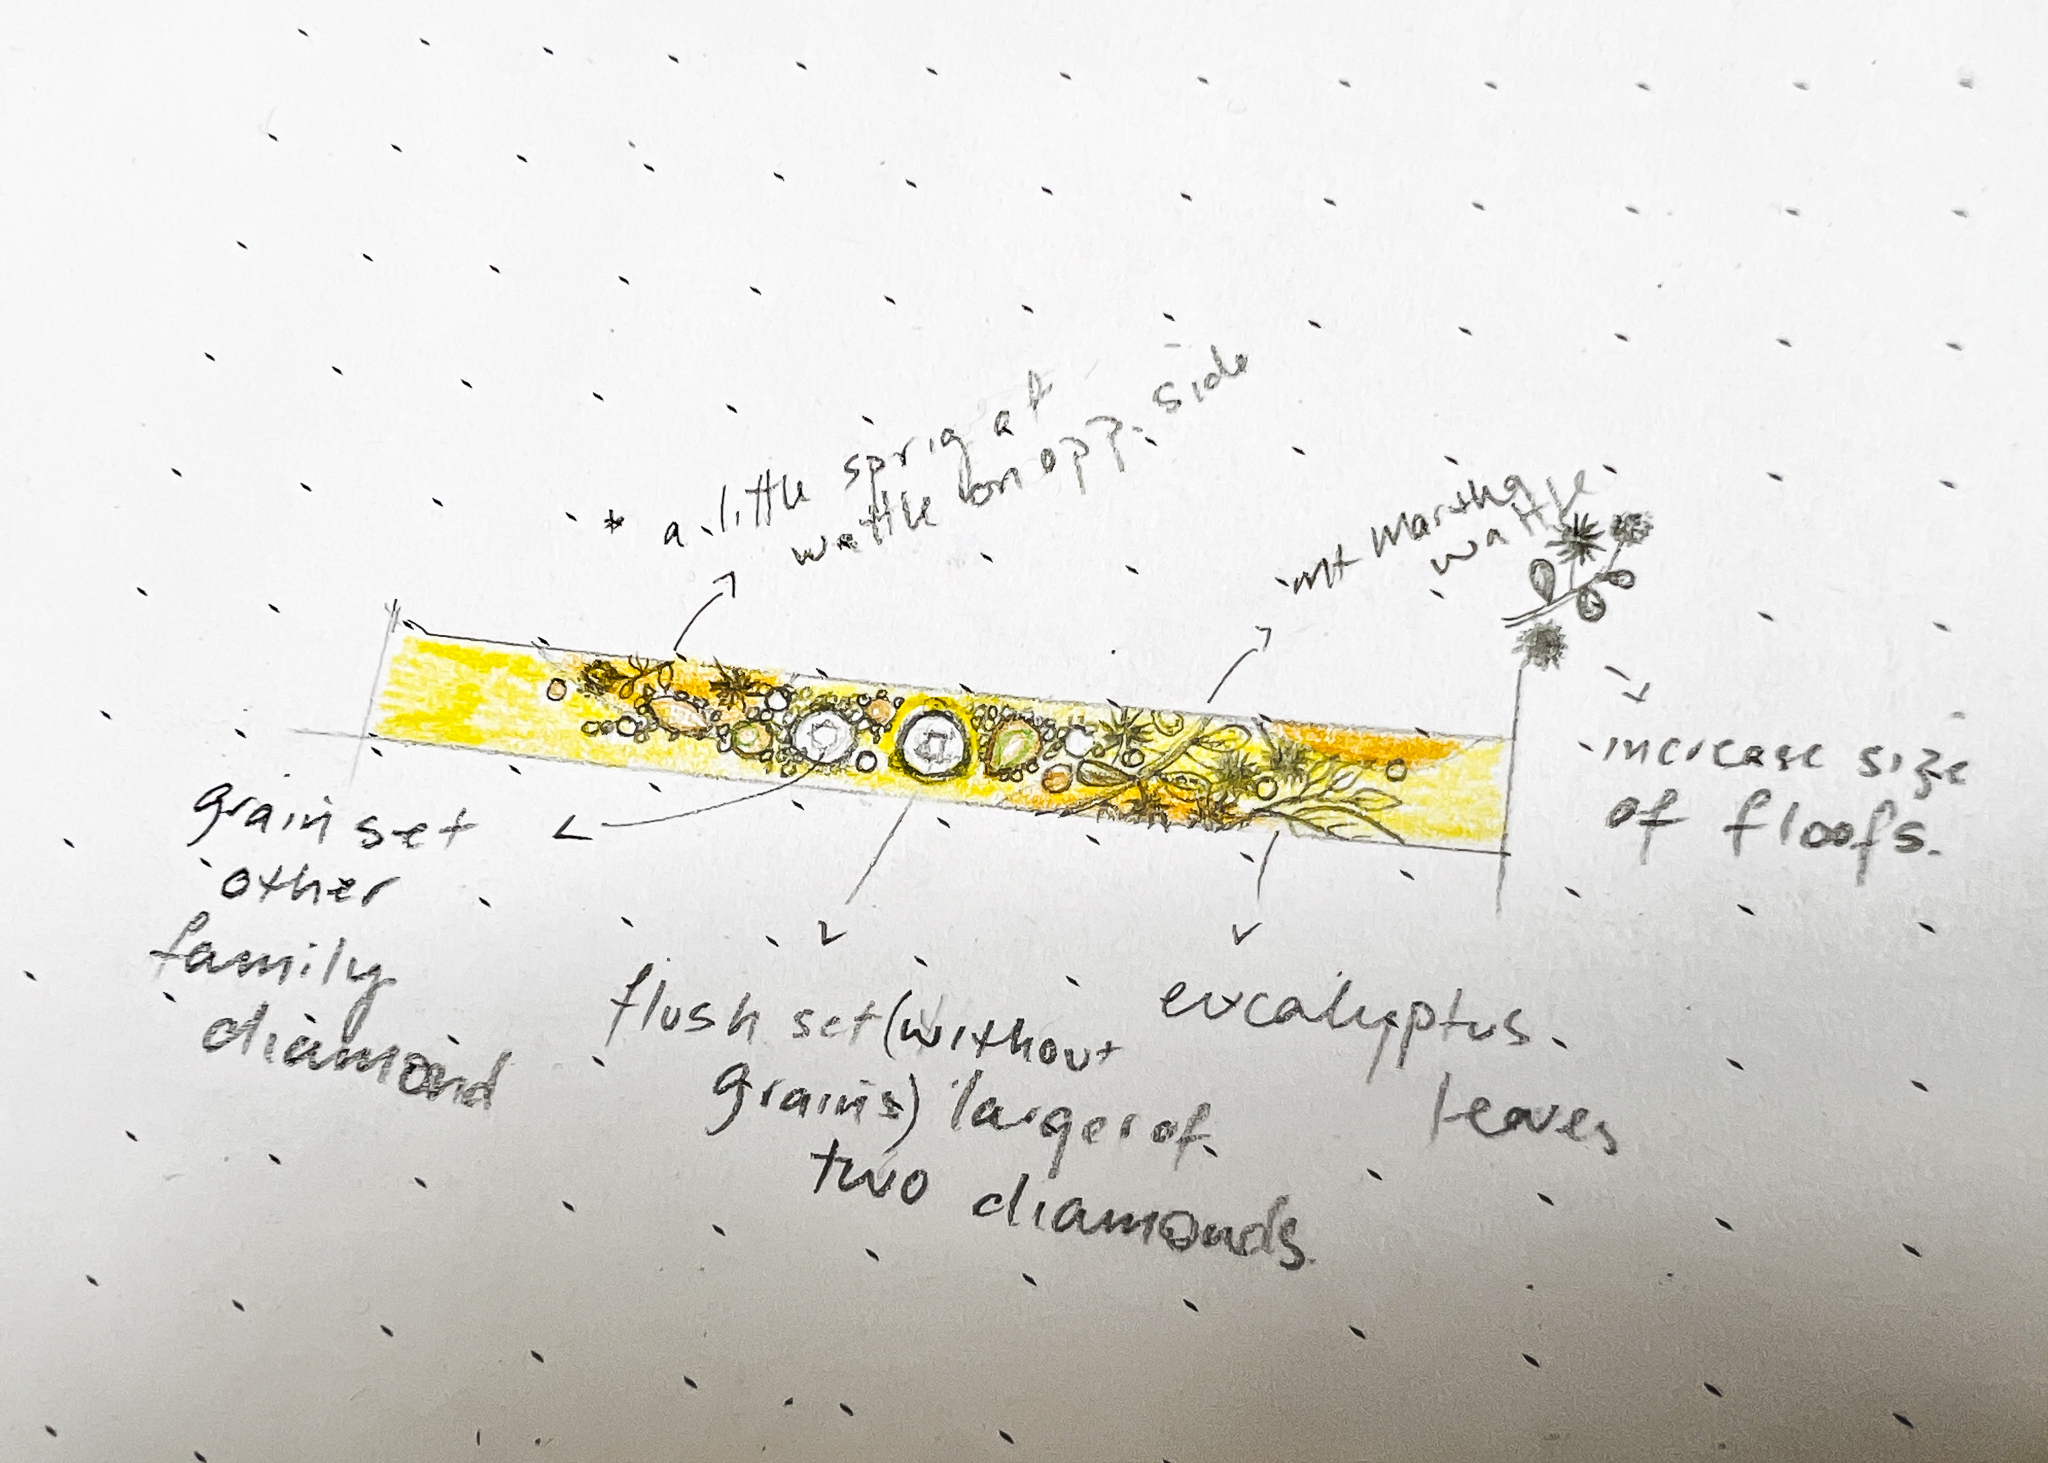 * a little sprig at
wattle on opp. side
mt Martha
wattle.
increase size
of floofs.
grain set
other
family
diamond
flush set (without
grains) larger of
two diamonds
eucalyptus.
leaves